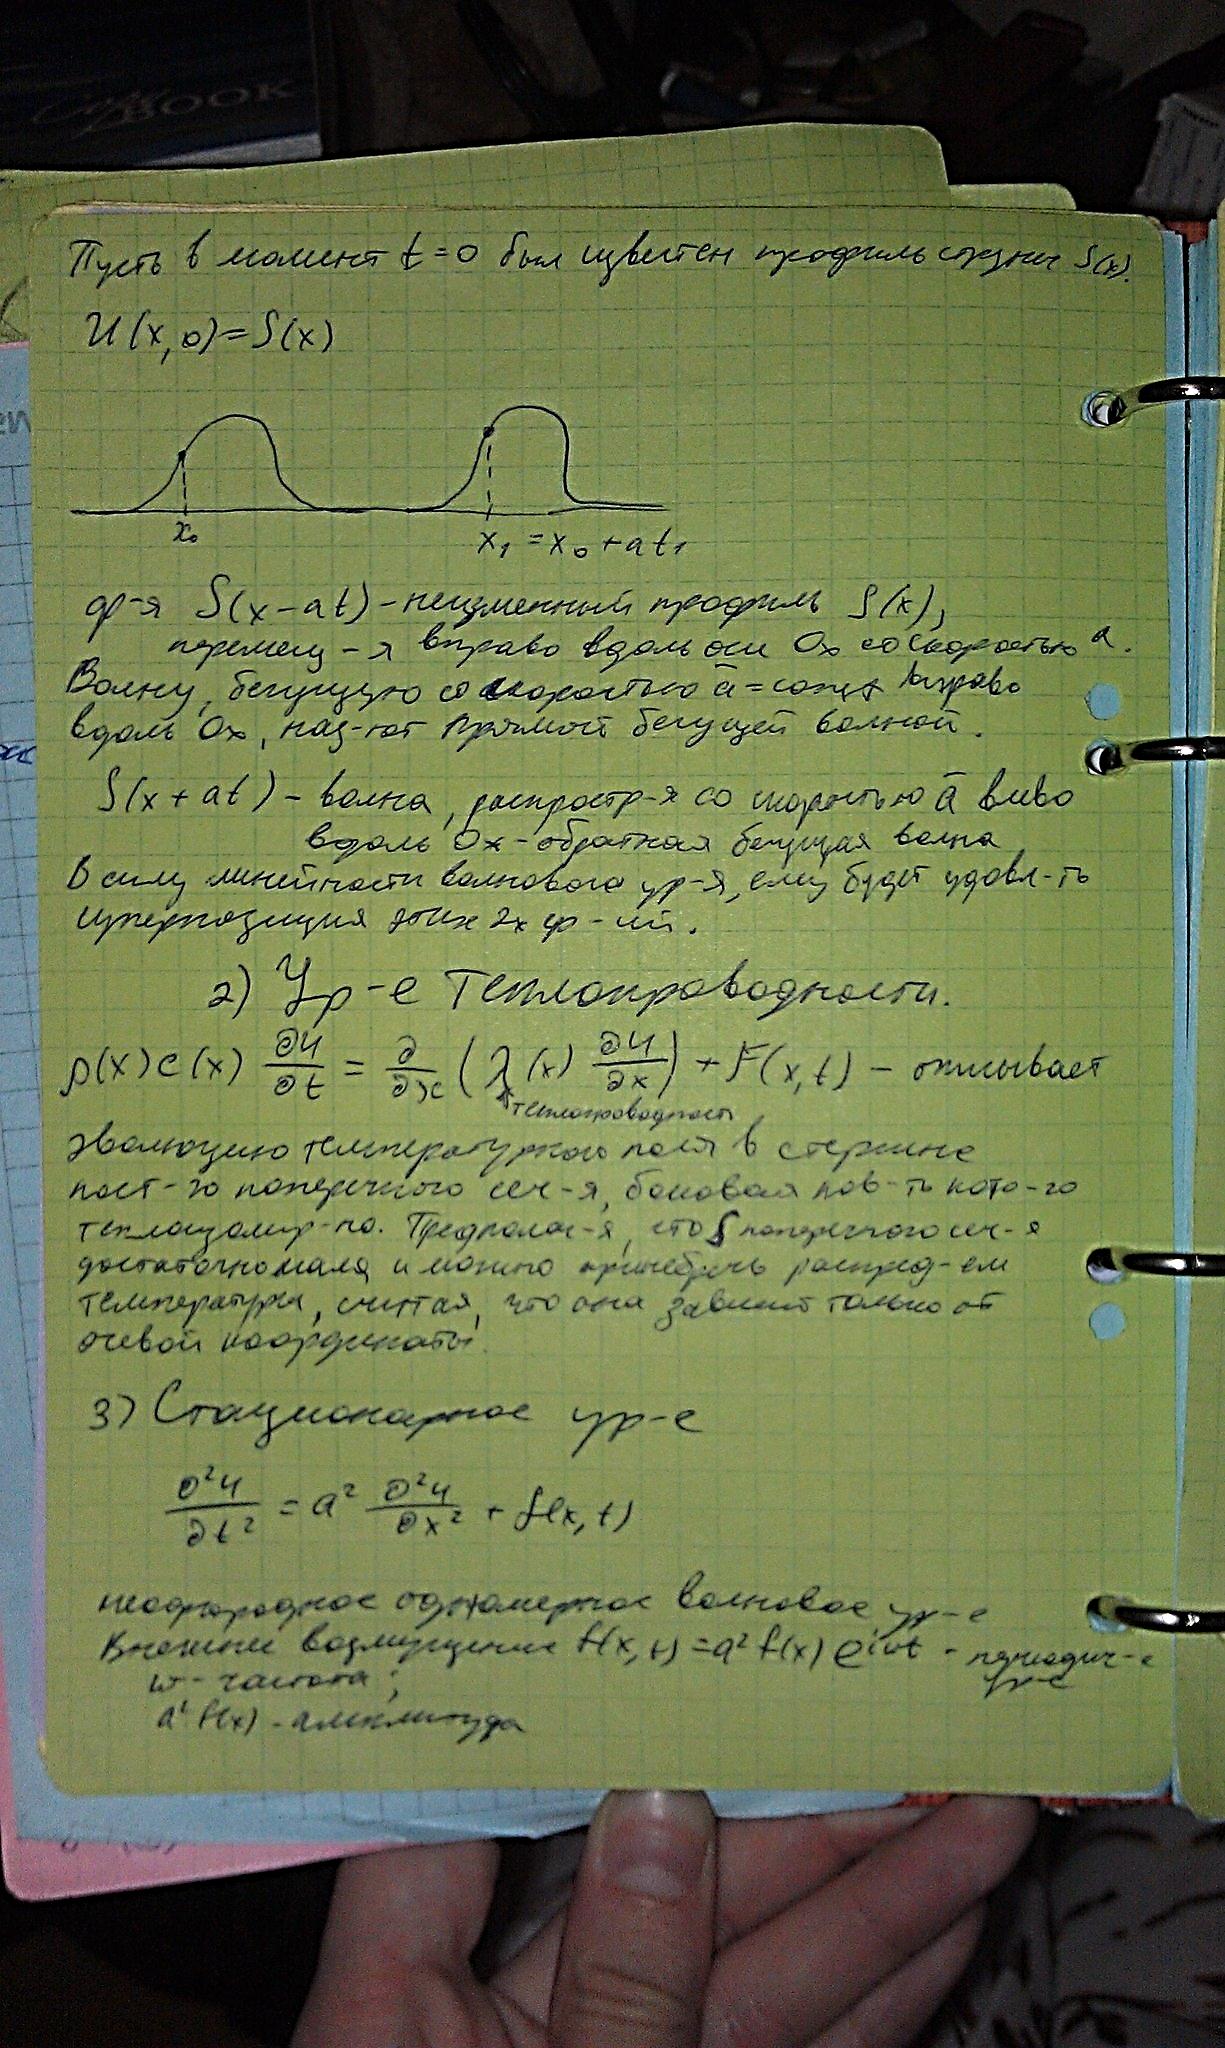 BOOK
Пусть в момент t = 0 был известен профиль струны S(x).
U(x, 0) = S(x)
x₀
x₁ = x₀ + at₁
ф-я S(x - at) - неизменный профиль S(x),
перемещ-я вправо вдоль оси Ox со скоростью a.
Волну, бегущую со скоростью a = const вправо
вдоль Ox, наз-ют прямой бегущей волной.
S(x + at) - волна, распростр-я со скоростью a влево
вдоль Ox - обратная бегущая волна
В силу линейности волнового ур-я, ему будет удовл-ть
суперпозиция этих 2х ф-ий.
2) Ур-е теплопроводности.
ρ(x) c(x) ∂u/∂t = ∂/∂x (λ(x) ∂u/∂x) + F(x, t) - описывает
теплопроводность
эволюцию температурного поля в стержне
пост-го поперечного сеч-я, боковая пов-ть кото-го
теплоизолир-на. Предполаг-я, что S поперечного сеч-я
достаточно мала и можно пренебречь распред-ем
температуры, считая, что она зависит только от
осевой координаты.
3) Стационарное ур-е
∂²u/∂t² = a² ∂²u/∂x² + f(x, t)
неоднородное одномерное волновое ur-е
Внешнее возмущение f(x, t) = a² f(x) e^{iωt} - периодич-е
ур-е
ω - частота;
a² f(x) - амплитуда